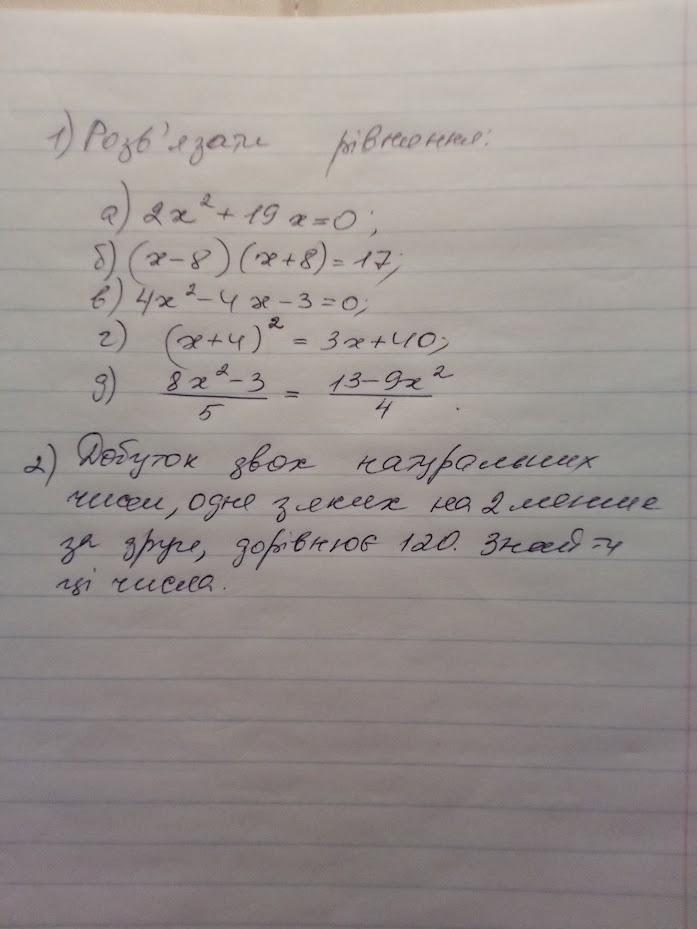 1) Розв'язати рівняння:
а) 2x² + 19x = 0;
б) (x-8)(x+8) = 17;
в) 4x² - 4x - 3 = 0;
г) (x+4)² = 3x + 40;
д) (8x² - 3)/5 = (13 - 9x²)/4.
2) Добуток двох натуральних
чисел, одне з яких на 2 менше
за друге, дорівнює 120. Знайти
ці числа.